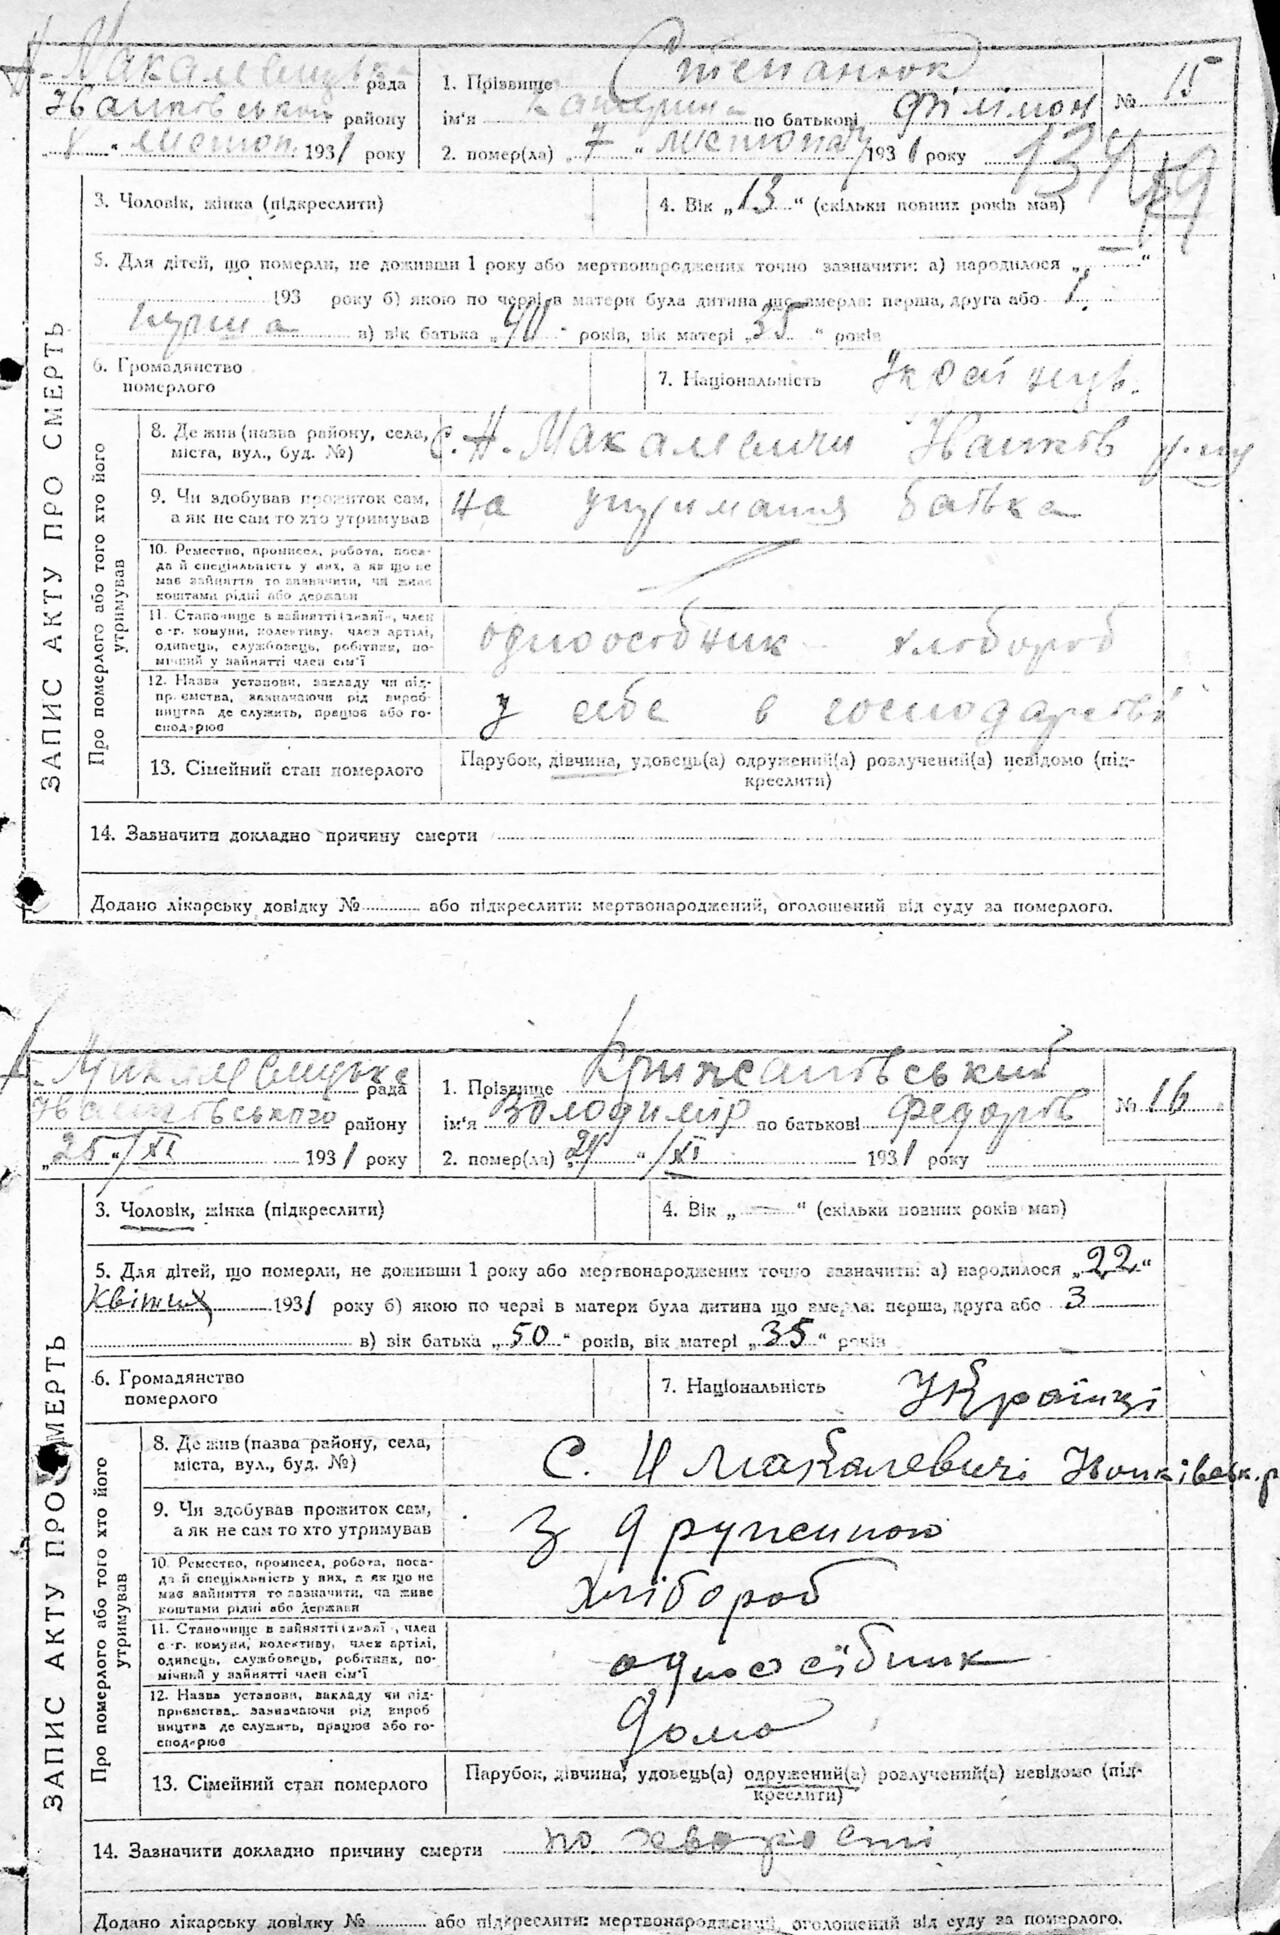 Н-Макалевицька рада
Іванківського району
" " листоп. 1931 року
1. Прізвище Степанюк
ім'я Катерина по батькові Філімон
2. помер(ла) „7" листопаду 1931 року
№ 15
134
3. Чоловік, жінка (підкреслити)
4. Вік „13" (скільки повних років мав)
5. Для дітей, що померли, не доживши 1 року або мертвонароджених точно зазначити: а) народилося „—"
193 року б) якою по черзі в матери була дитина що вмерла: перша, друга або 1
перша в) вік батька „40" років, вік матері „35" років
6. Громадянство
померлого
7. Національність Українець.
ЗАПИС АКТУ ПРО СМЕРТЬ
Про померлого або того хто його
утримував
8. Де жив (назва району, села,
міста, вул., буд. №)
с. Н. Макалевичи Іванків р-ну
9. Чи здобував прожиток сам,
а як не сам то хто утримував
на утримання батька
10. Ремество, промисел, робота, поса-
да й спеціяльність у них, а як що не
має зайняття то зазначити, чи живе
коштами рідні або держави
11. Становище в зайнятті (хазяї, член
с.-г. комуни, колективу, член артілі,
одинець, службовець, робітник, по-
мічний у зайнятті член сім'ї
одноосібник хлібороб
12. Назва установи, закладу чи під-
приємства, зазначаючи рід вироб-
ництва де служить, працює або го-
сподарює
у себе в господарстві
13. Сімейний стан померлого
Парубок, дівчина, удовець(а) одружений(а) розлучений(а) невідомо (під-
креслити)
14. Зазначити докладно причину смерти
Додано лікарську довідку № або підкреслити: мертвонароджений, оголошений від суду за померлого.
Н-Макалевицька рада
Іванківського району
„25"/XI 1931 року
1. Прізвище Крижановський
ім'я Володимір по батькові Федорів
2. помер(ла) „21"/XI 1931 року
№ 16
3. Чоловік, жінка (підкреслити)
4. Вік „—" (скільки повних років мав)
5. Для дітей, що померли, не доживши 1 року або мертвонароджених точно зазначити: а) народилося „22"
квітня 1931 року б) якою по черзі в матери була дитина що вмерла: перша, друга або 3
в) вік батька „50" років, вік матері „35" років
6. Громадянство
померлого
7. Національність Українці
ЗАПИС АКТУ ПРО СМЕРТЬ
Про померлого або того хто його
утримував
8. Де жив (назва району, села,
міста, вул., буд. №)
С. Н Макалевичі Іванківськ. р
9. Чи здобував прожиток сам,
а як не сам то хто утримував
З дружиною
10. Ремество, промисел, робота, поса-
да й спеціяльність у них, а як що не
має зайняття то зазначити, чи живе
коштами рідні або держави
хлібороб
11. Становище в зайнятті (хазяї, член
с-г. комуни, колективу, член артілі,
одинець, службовець, робітник, по-
мічний у зайнятті член сім'ї
одноосібник
12. Назва установи, закладу чи під-
приємства, зазначаючи рід вироб
ництва де служить, працює або го-
сподарює
дома
13. Сімейний стан померлого
Парубок, дівчина, удовець(а) одружений(а) розлучений(а) невідомо (під-
креслити)
14. Зазначити докладно причину смерти по хворості
Додано лікарську довідку № або підкреслити: мертвонароджений, оголошений від суду за померлого.